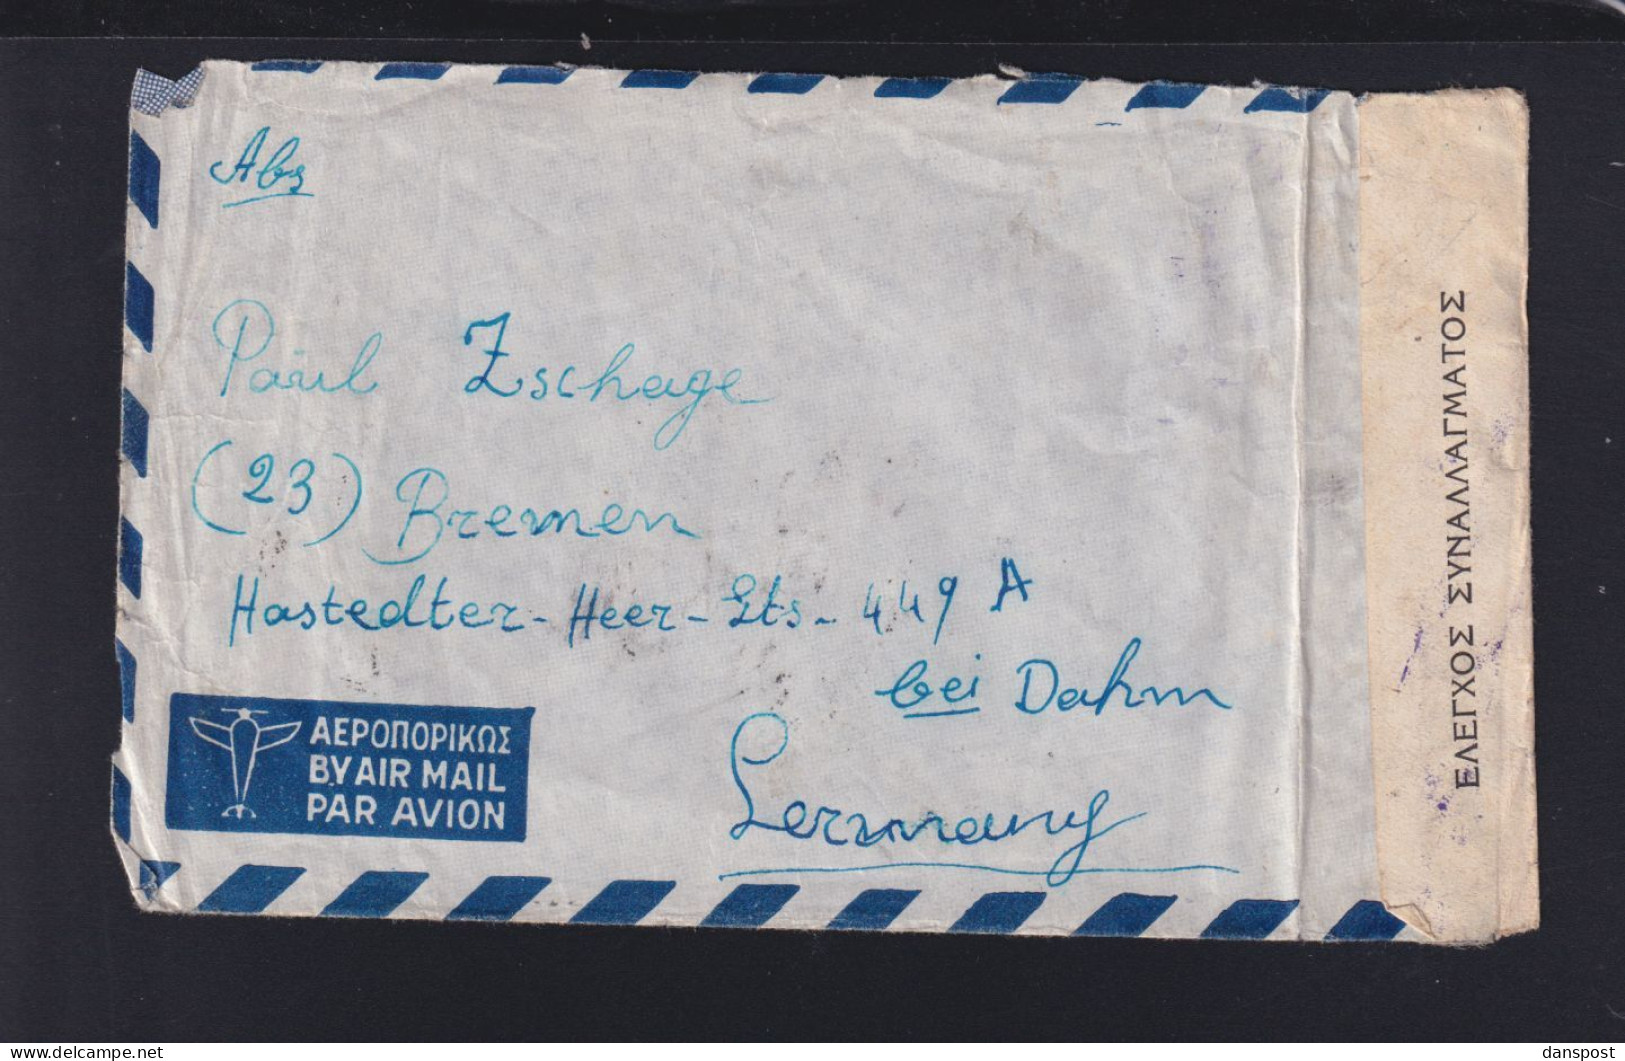 Abs
Paul Zschage
(23) Bremen
Hastedter-Heer-Sts- 449 A
bei Dahm
Germany
ΑΕΡΟΠΟΡΙΚΩΣ
BY AIR MAIL
PAR AVION
ΕΛΕΓΧΟΣ ΣΥΝΑΛΛΑΓΜΑΤΟΣ
danspost